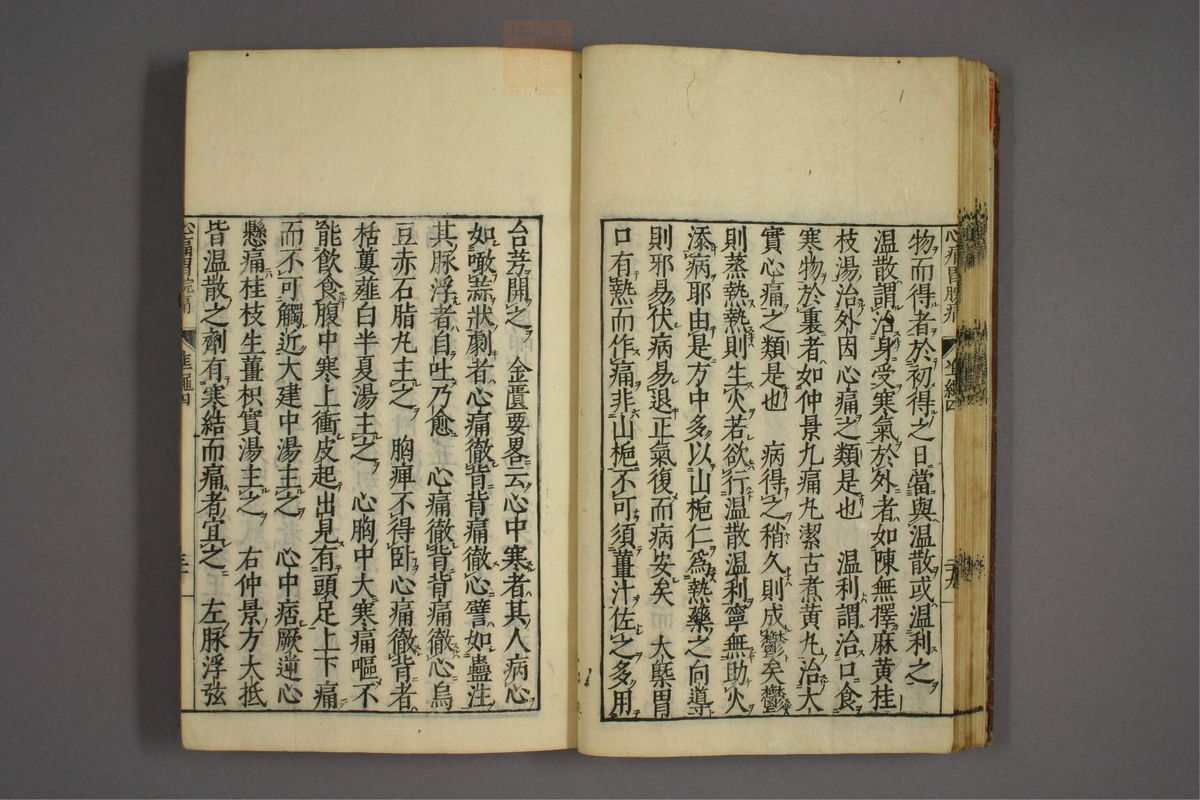 物而得者於初得之日當與温散或温利之
温散謂治身受寒氣於外者如陳無擇麻黄桂
枝湯治外因心痛之類是也　温利謂治口食
寒物於裏者如仲景九痛丸潔古煮黄丸治大
實心痛之類是也　病得之稍久則成鬱矣鬱
則蒸熱熱則生火若欲行温散温利寧無助火
添病耶由是方中多以山梔仁爲熱藥之向導
則邪易伏病易退正氣復而病安矣　大槩胃
口有熱而作痛非山梔不可須薑汁佐之多用
心痛胃脘痛　準繩四
台芎開之　金匱要畧云心中寒者其人病心
如噉蒜狀劇者心痛徹背背痛徹心譬如蠱注
其脉浮者自吐乃愈　心痛徹背背痛徹心烏
豆赤石脂丸主之　胸痺不得卧心痛徹背者
栝蔞薤白半夏湯主之　心胸中大寒痛嘔不
能飲食腹中寒上衝皮起出見有頭足上下痛
而不可觸近大建中湯主之　心中痞厥逆心
懸痛桂枝生薑枳實湯主之　右仲景方大抵
皆温散之劑有寒結而痛者宜之　左脉浮弦
心痛胃脘痛　準繩四